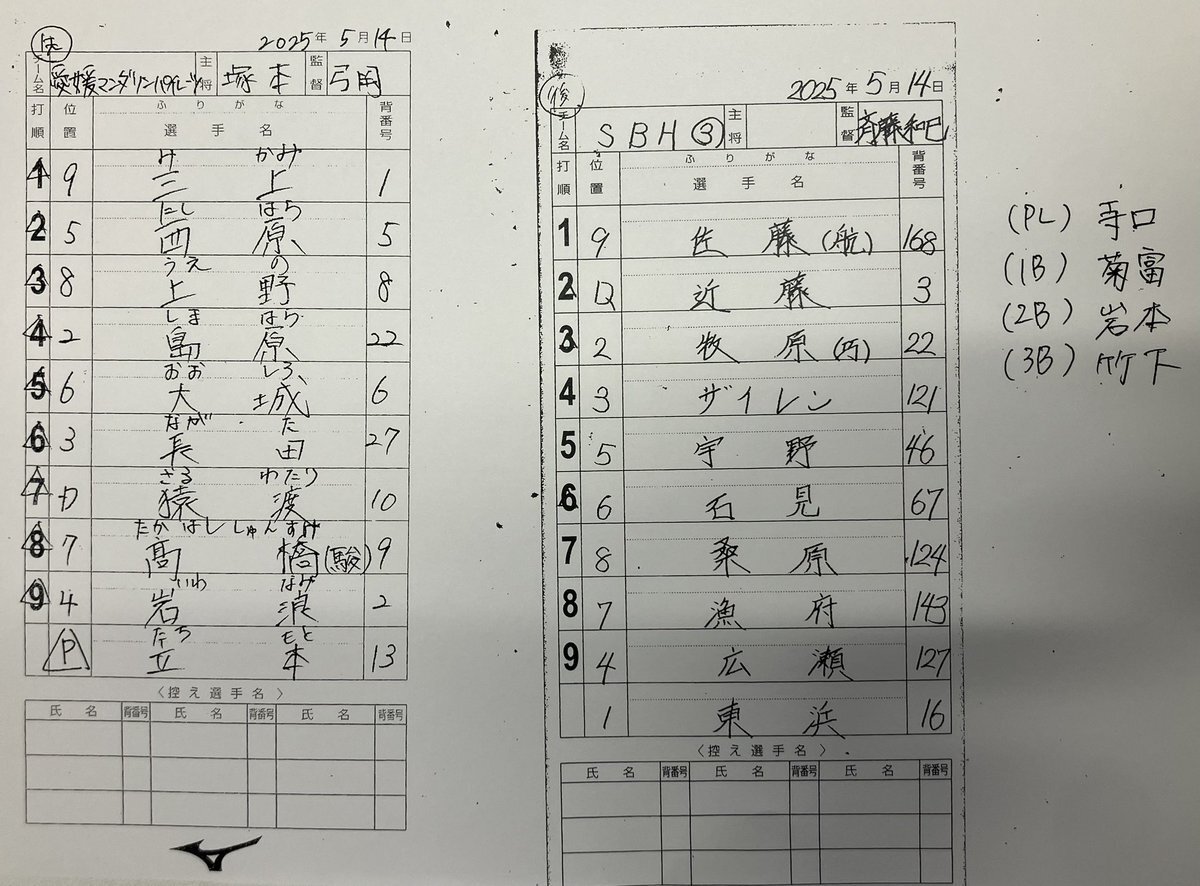 先
2025年 5月 14日
チーム名 愛媛マンダリンパイレーツ 主将 塚本 監督 弓岡
打順 位置 ふりがな 選手名 背番号
み かみ
1 9 三上 1
にし はら
2 5 西原 5
うえ の
3 8 上野 8
しま はら
4 2 島原 22
おお しろ
5 6 大城 6
なが た
6 3 長田 27
さる わたり
7 D 猿渡 10
たかはし しゅんすけ
8 7 髙橋(駿) 9
いわ なみ
9 4 岩浪 2
たち もと
P 立本 13
〈控え選手名〉
氏名 背番号 氏名 背番号 氏名 背番号
後
2025年 5月 14日
チーム名 SBH③ 主将 監督 斉藤和巳
打順 位置 ふりがな 選手名 背番号
1 9 佐藤(航) 168
2 D 近藤 3
3 2 牧原(巧) 22
4 3 ザイレン 121
5 5 宇野 46
6 6 石見 67
7 8 桑原 124
8 7 漁府 143
9 4 広瀬 127
1 東浜 16
〈控え選手名〉
氏名 背番号 氏名 背番号 氏名 背番号
(PL) 寺口
(1B) 菊富
(2B) 岩本
(3B) 竹下